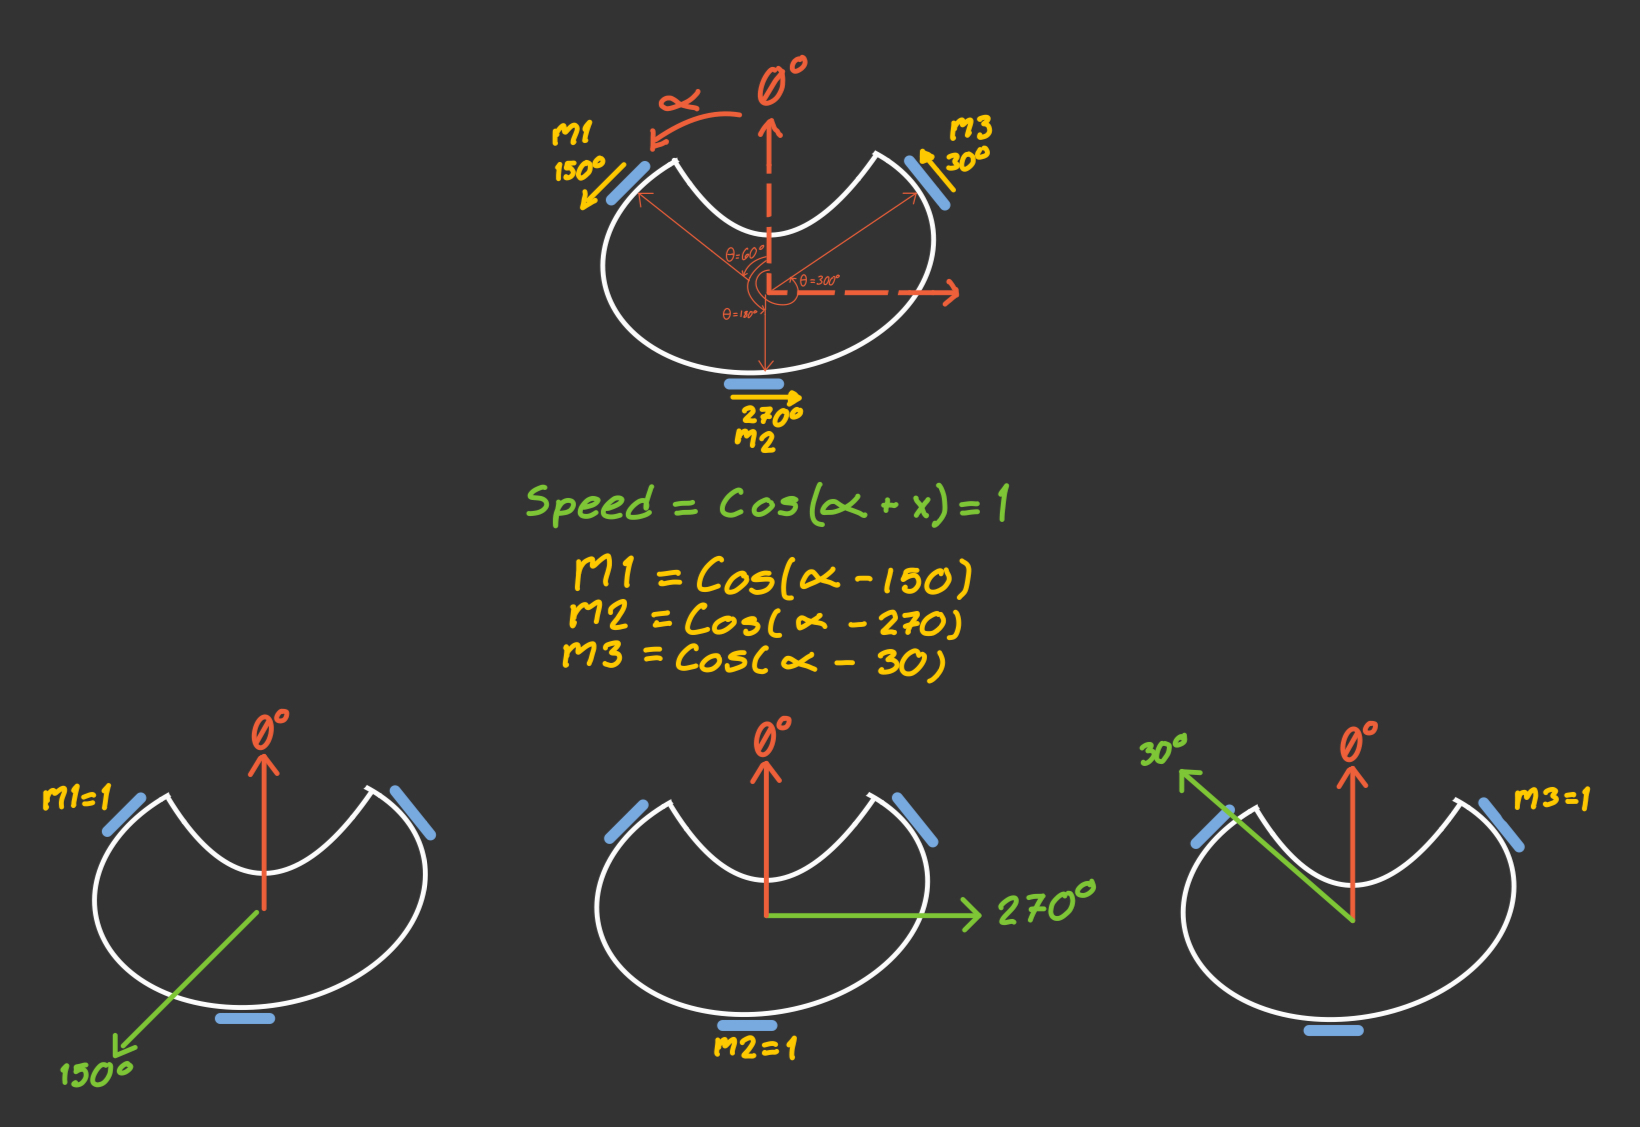 0°
α
m1
150°
m3
30°
θ=60°
θ=300°
θ=180°
270°
m2
Speed = Cos(α + x) = 1
M1 = Cos(α - 150)
m2 = Cos(α - 270)
m3 = Cos(α - 30)
0°
m1=1
150°
0°
270°
m2=1
30°
0°
m3=1